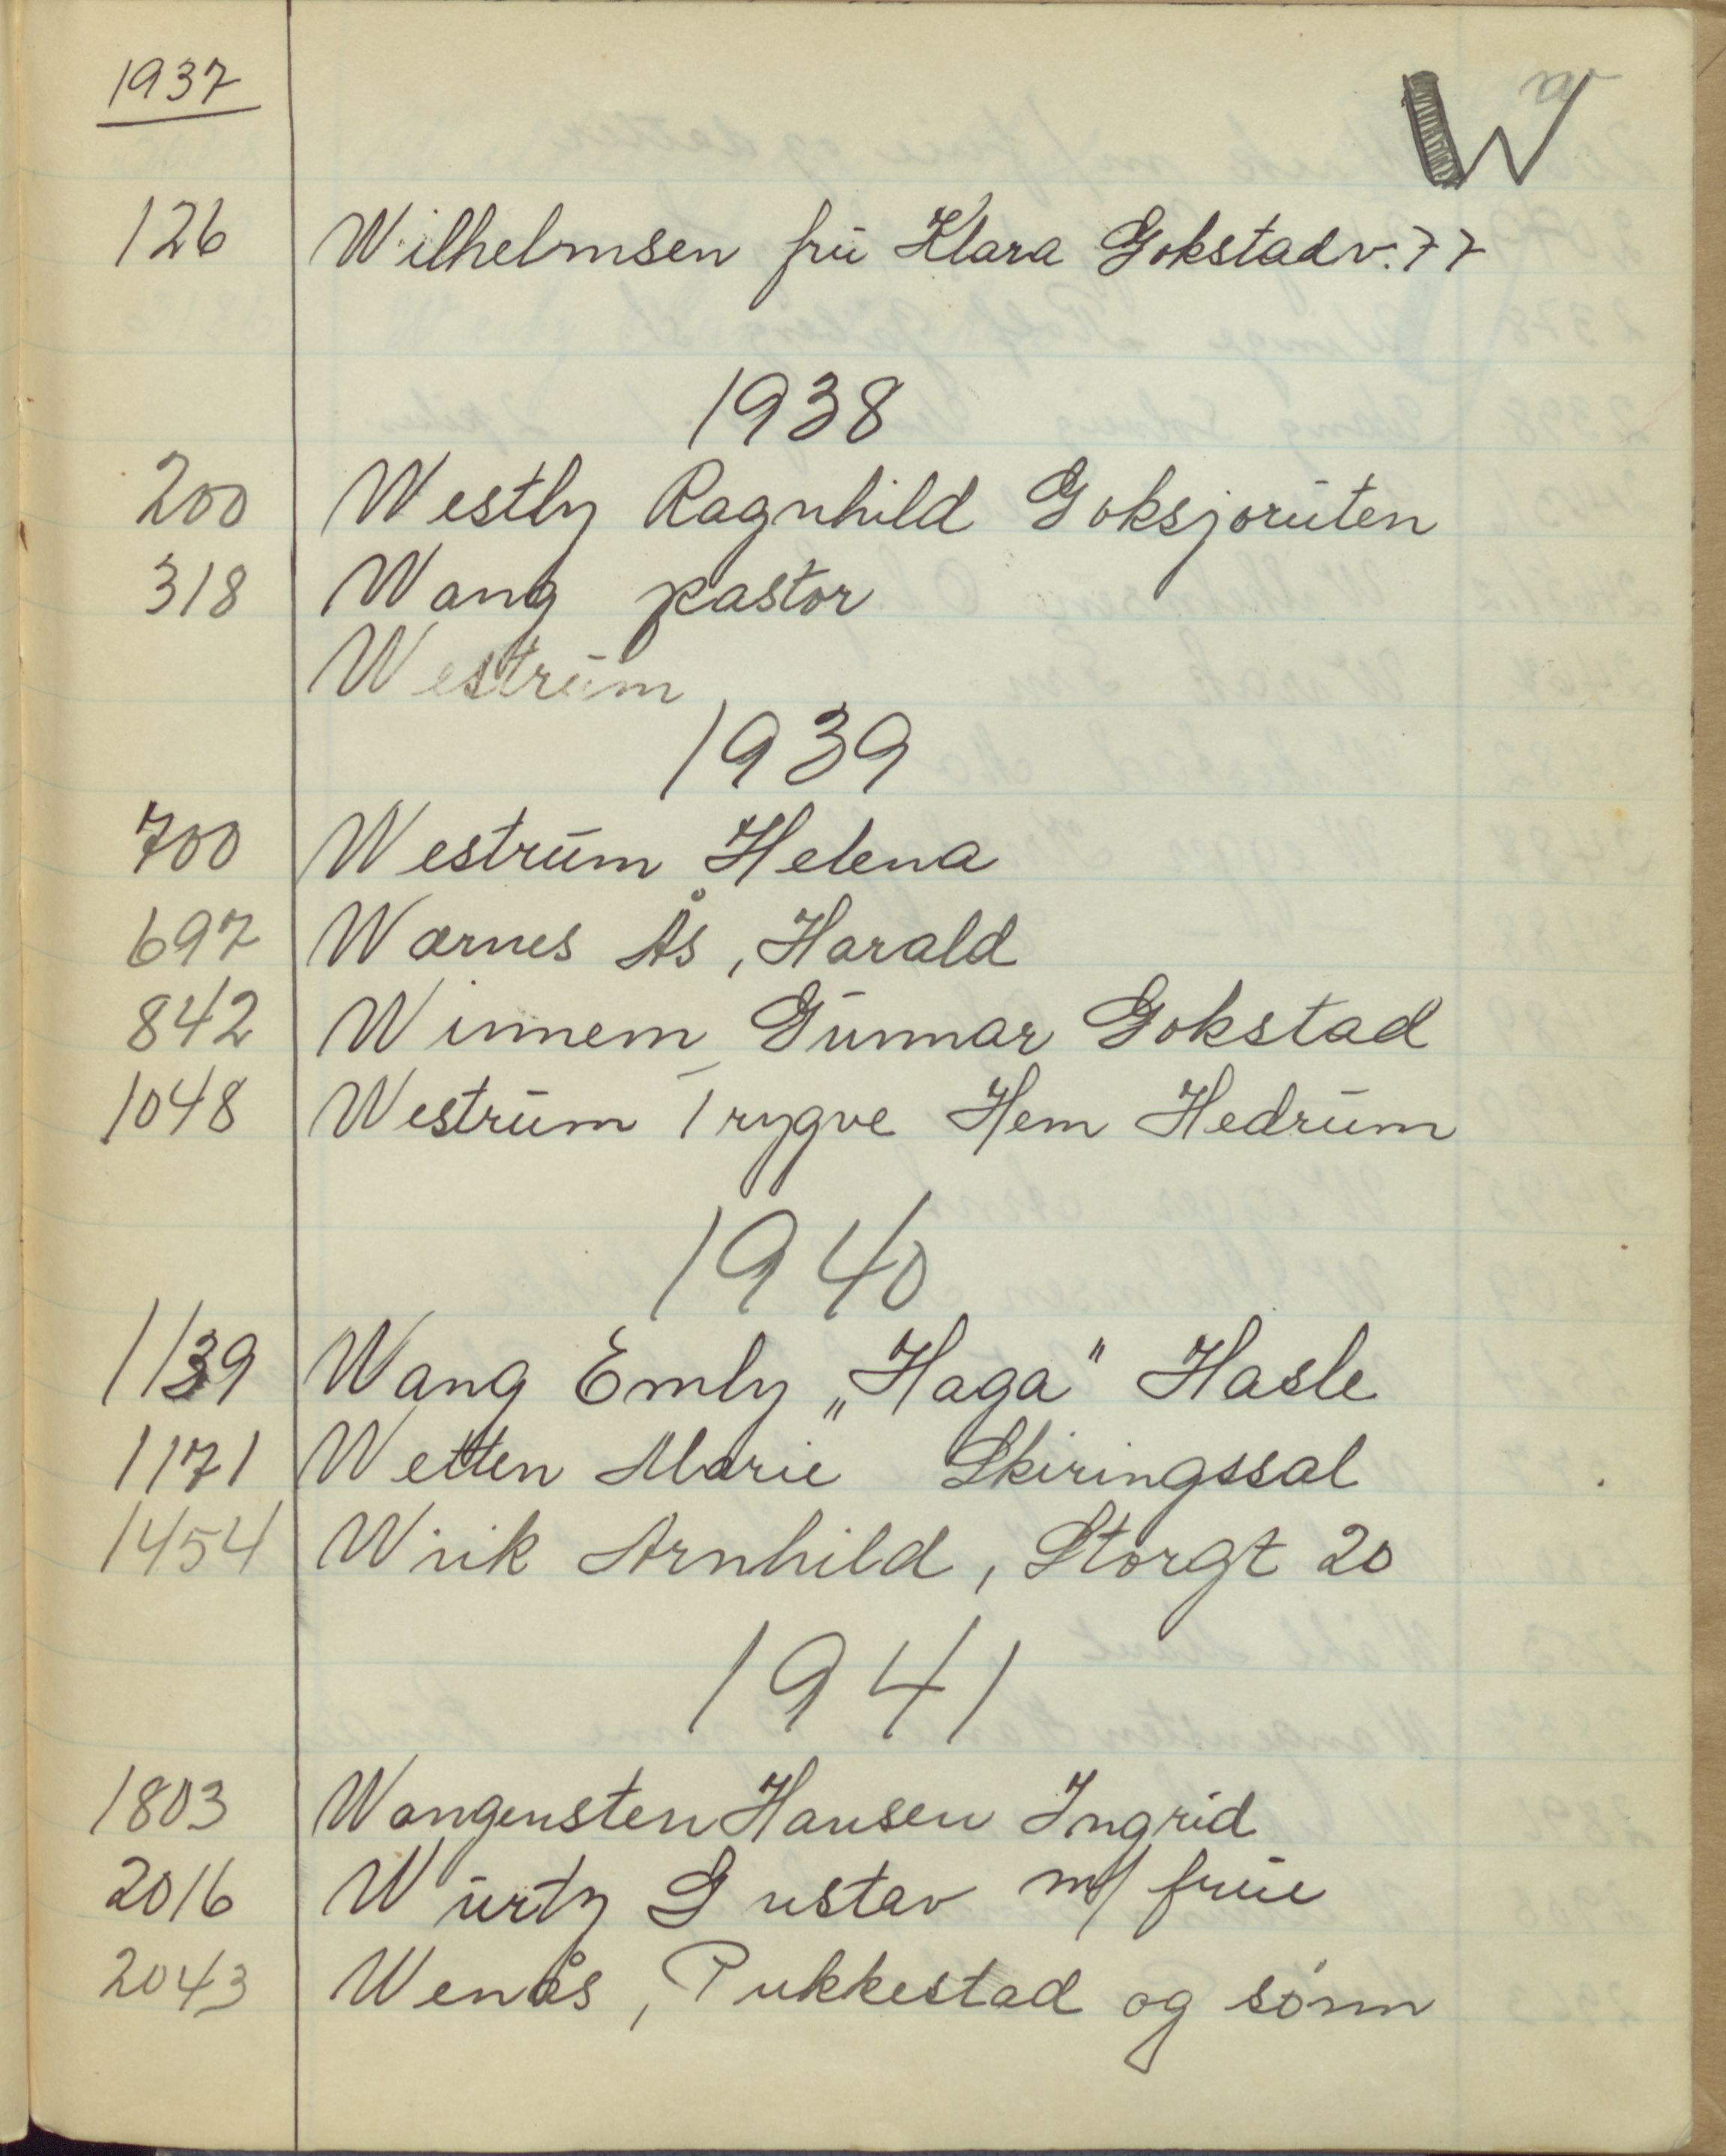 1937
W
126 Wilhelmsen fru Klara Gokstadv. 77
1938
200 Westby Ragnhild Goksjoruten
318 Wang pastor
Westrum
1939
700 Westrum Helena
697 Warnes Ås, Harald
842 Winnem Gunnar Gokstad
1048 Westrum Trygve Hem Hedrum
1940
1139 Wang Emly „Haga" Hasle
1171 Wetten Marie Skiringssal
1454 Wiik Arnhild, Storgt 20
1941
1803 Wangensten Hansen Ingrid
2016 Wurtz Gustav m/ frue
2043 Wenås, Pukkestad og sønn